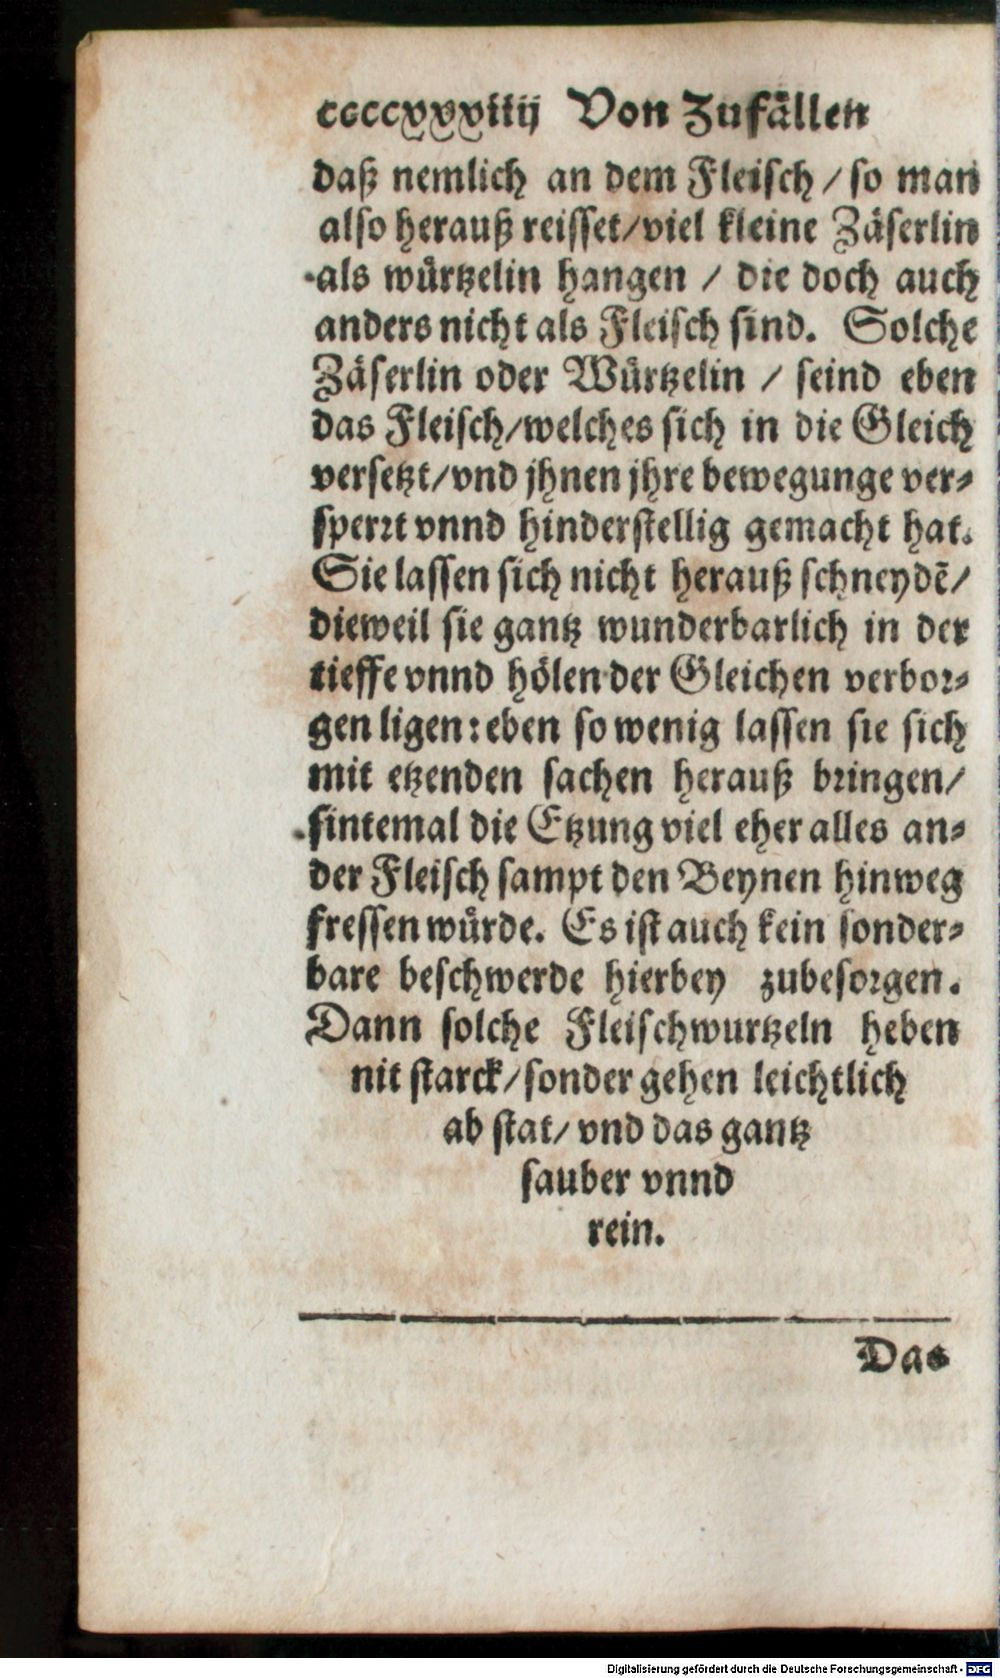 ccccxxxviij Von Zufällen
daß nemlich an dem Fleisch / so man
also herauß reisset/viel kleine Zäserlin
als würtzelin hangen / die doch auch
anders nicht als Fleisch sind. Solche
Zäserlin oder Würtzelin / seind eben
das Fleisch/welches sich in die Gleich
versetzt/vnd jhnen jhre bewegunge ver-
sperrt vnnd hinderstellig gemacht hat.
Sie lassen sich nicht herauß schneydē/
dieweil sie gantz wunderbarlich in der
tieffe vnnd hölen der Gleichen verbor-
gen ligen: eben so wenig lassen sie sich
mit etzenden sachen herauß bringen/
sintemal die Etzung viel eher alles an-
der Fleisch sampt den Beynen hinweg
fressen würde. Es ist auch kein sonder-
bare beschwerde hierbey zubesorgen.
Dann solche Fleischwurtzeln heben
nit starck/sonder gehen leichtlich
ab stat/ vnd das gantz
sauber vnnd
rein.
Das
Digitalisierung gefördert durch die Deutsche Forschungsgemeinschaft - DFG